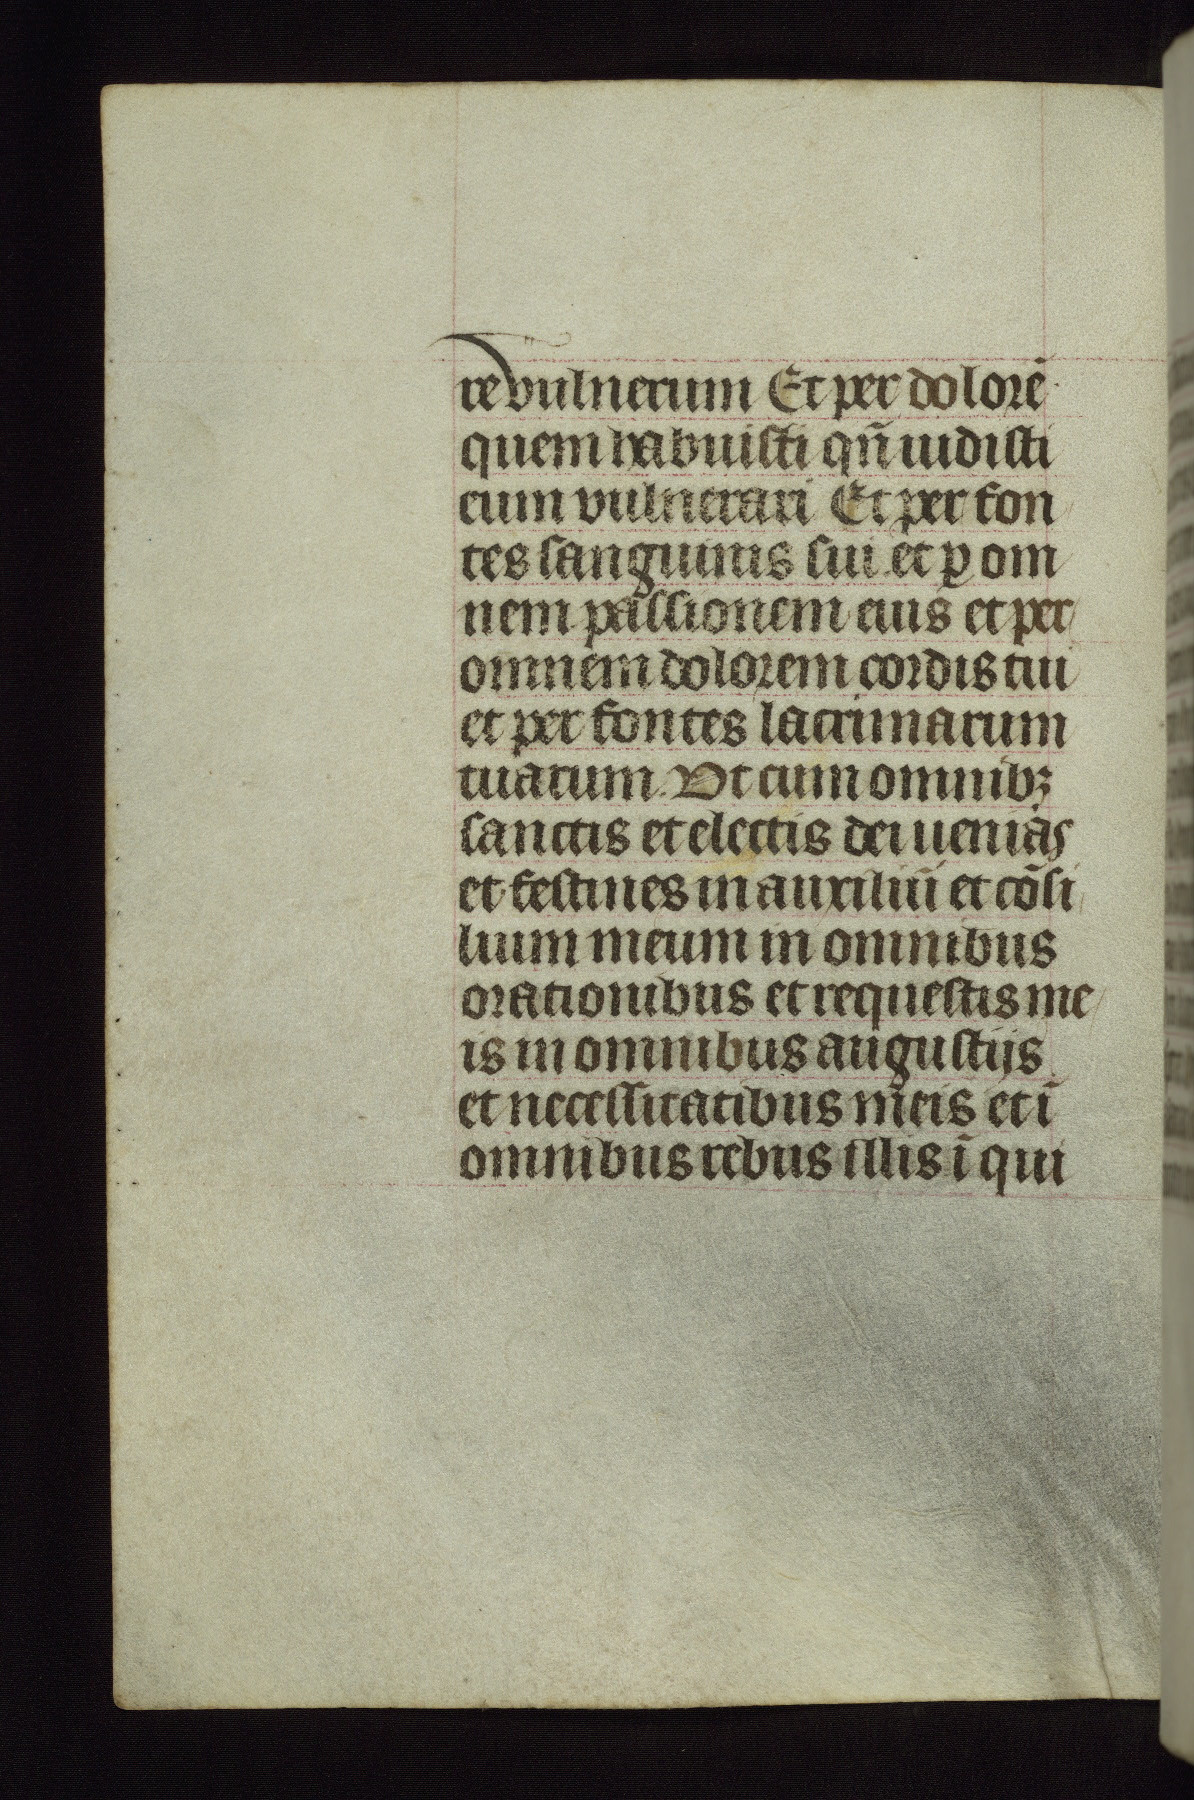 re vulnerum Et per dolorē
quem habuisti qn̄ uidisti
eum vulnerari Et per fon
tes sanguinis sui et ꝑ om
nem passionem eius et per
omnem dolorem cordis tui
et per fontes lacrimarum
tuarum. Vt cum omnibꝫ
sanctis et electis dei uenias
et festines in auxiliū et cōsi
lium meum in omnibus
orationibus et requestis me
is in omnibus angustijs
et necessitatibus meis et ī
omnibus rebus illis ī qui